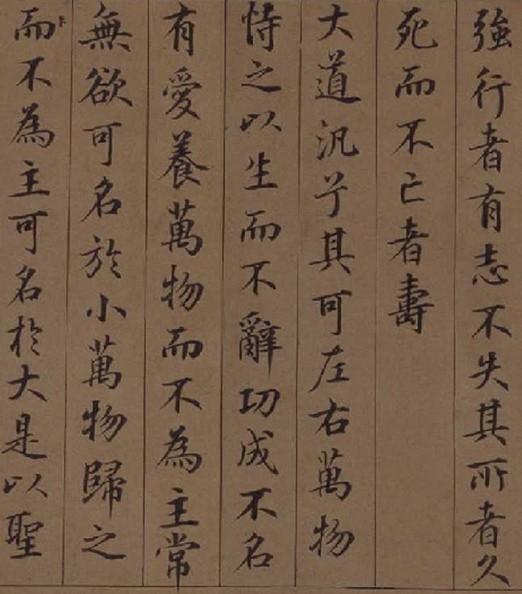 強行者有志不失其所者久
死而不亡者壽
大道汎兮其可左右萬物
恃之以生而不辭功成不名
有愛養萬物而不為主常
無欲可名於小萬物歸之
而不為主可名於大是以聖